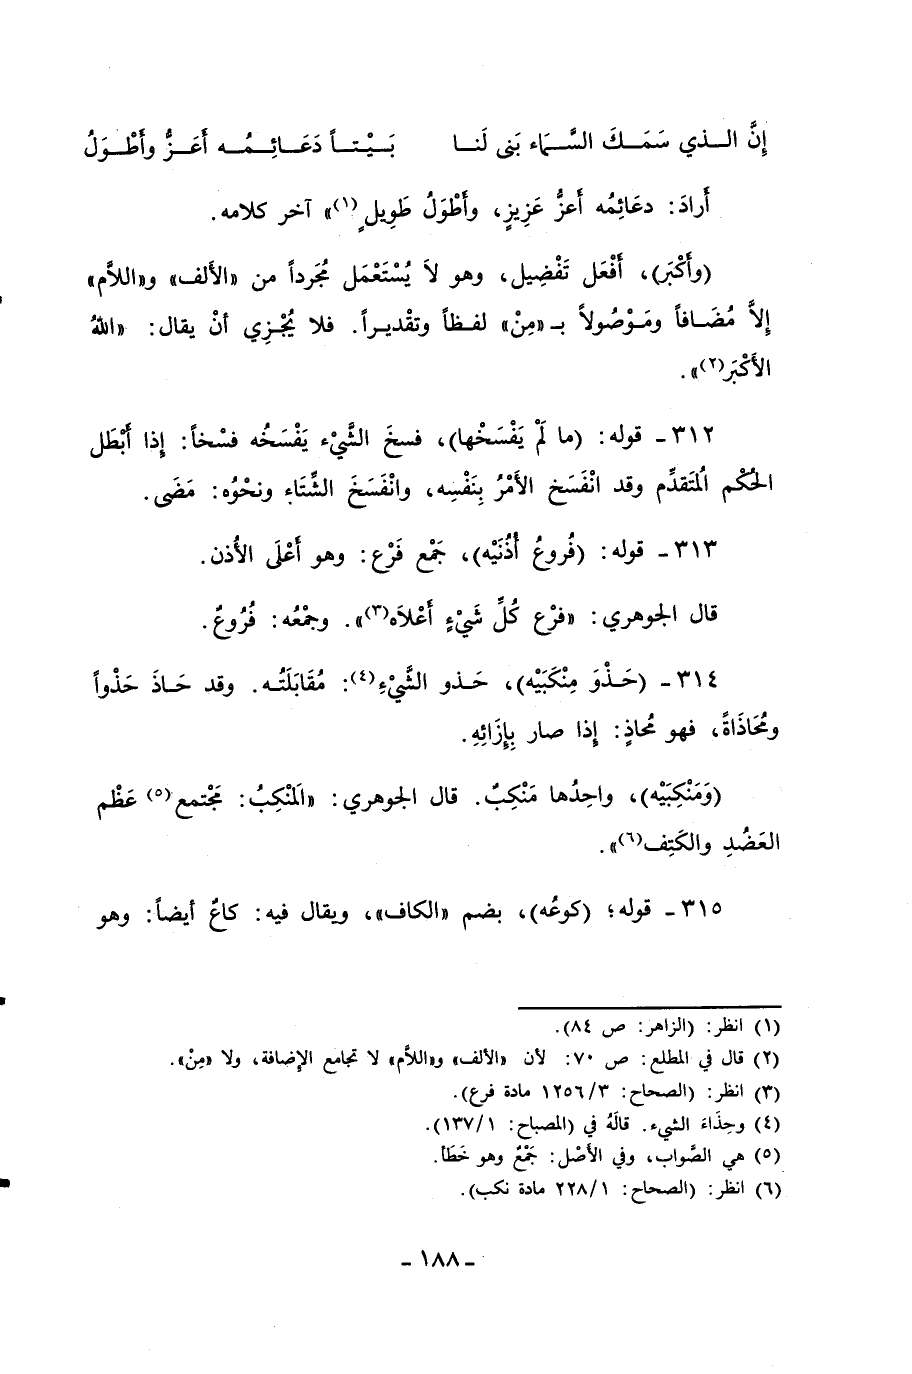 إِنَّ الـذي سَمَـكَ السَّـمَاء بَنى لَنـا بَـيْـتـاً دَعَـائِـمُـه أَعَـزُّ وأَطْـوَلُ
أَرادَ: دعَائِمُه أعزُّ عَزِيزٍ، وأَطْوَلُ طَوِيلٍ(١)» آخر كلامه.
(وأَكْبَر)، أَفْعَل تَفْضِيل، وهو لاَ يُسْتَعْمَل مُجَرداً من «الألف» و«اللاَّم»
إلاَّ مُضَـافاً ومَـوْصُولاً بـ«مِنْ» لفـظاً وتقْديـراً. فلا يُجْـزِي أنْ يقال: «اللهُ
الأَكْبَر(٢)».
٣١٢ - قوله: (ما لَمْ يَفْسَخْها)، فسخَ الشَّيْء يَفْسَخُه فسْخاً: إِذا أَبْطَل
الحُكْم المُتَقدِّم وقد انْفَسَخ الأمْرُ بِنَفْسِه، وانْفَسَخَ الشِّتَاء ونحْوُه: مَضَى.
٣١٣ - قوله: (فُروعُ أُذُنَيْه)، جَمْع فَرْع: وهو أَعْلَى الأُذن.
قال الجوهري: «فرْع كُلِّ شَيْءٍ أَعْلاَه(٣)». وجمْعُه: فُرُوعٌ.
٣١٤ - (حَـذْوَ مِنْكَبَيْه)، حَـذو الشَّيْءِ(٤): مُقَابَلَتُـه. وقد حَـاذَ حَذْواً
ومُحَاذَاةً، فهو مُحاذٍ: إِذا صار بِإِزَائِهِ.
(وَمَنْكِبَيْه)، واحِدُها مَنْكِبٌ. قال الجوهري: «اَلمَنْكِبُ: مَجْتمع(٥) عَظْم
العَضُدِ والكَتِف(٦)».
٣١٥ - قوله؛ (كوعُه)، بضم «الكاف»، ويقال فيه: كاعٌ أيضاً: وهو
(١) انظر: (الزاهر: ص ٨٤).
(٢) قال في المطلع: ص ٧٠: لأن «الألف» و«اللاَّم» لا تجامع الإضافة، ولا «مِنْ».
(٣) انظر: (الصحاح: ١٢٥٦/٣ مادة فرع).
(٤) وحِذَاءَ الشيء. قالَهُ في (المصباح: ١٣٧/١).
(٥) هي الصَّواب، وفي الأصْل: جَمْعٌ وهو خَطَأ.
(٦) انظر: (الصحاح: ٢٢٨/١ مادة نكب).
- ١٨٨ -